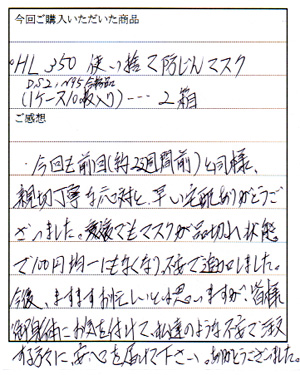 今回ご購入いただいた商品
HL 350 使い捨て防じんマスク
DS2, N95合格品
(1ケース10枚入り)---2箱
ご感想
・今回も前回(約2週間前)と同様、
親切丁寧な応対と、早い宅配ありがとうご
ざいました。愛媛でもマスクが品切れ状態
で100円均一にもなくなり不安で追加しました。
今後、ますますお忙しいと思いますが、皆様
御身体にお気を付けて、私達のような不安で注文
する方々に安心を届けて下さい。ありがとうございました。